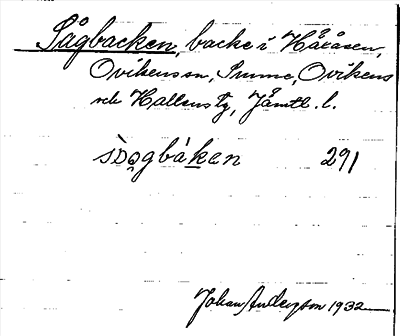 Sågbacken, backe i Håkåsen,
Ovikens sn, Sunne, Ovikens
och Hallens tg, Jämtl. l.
291
Johan Anderzson 1932